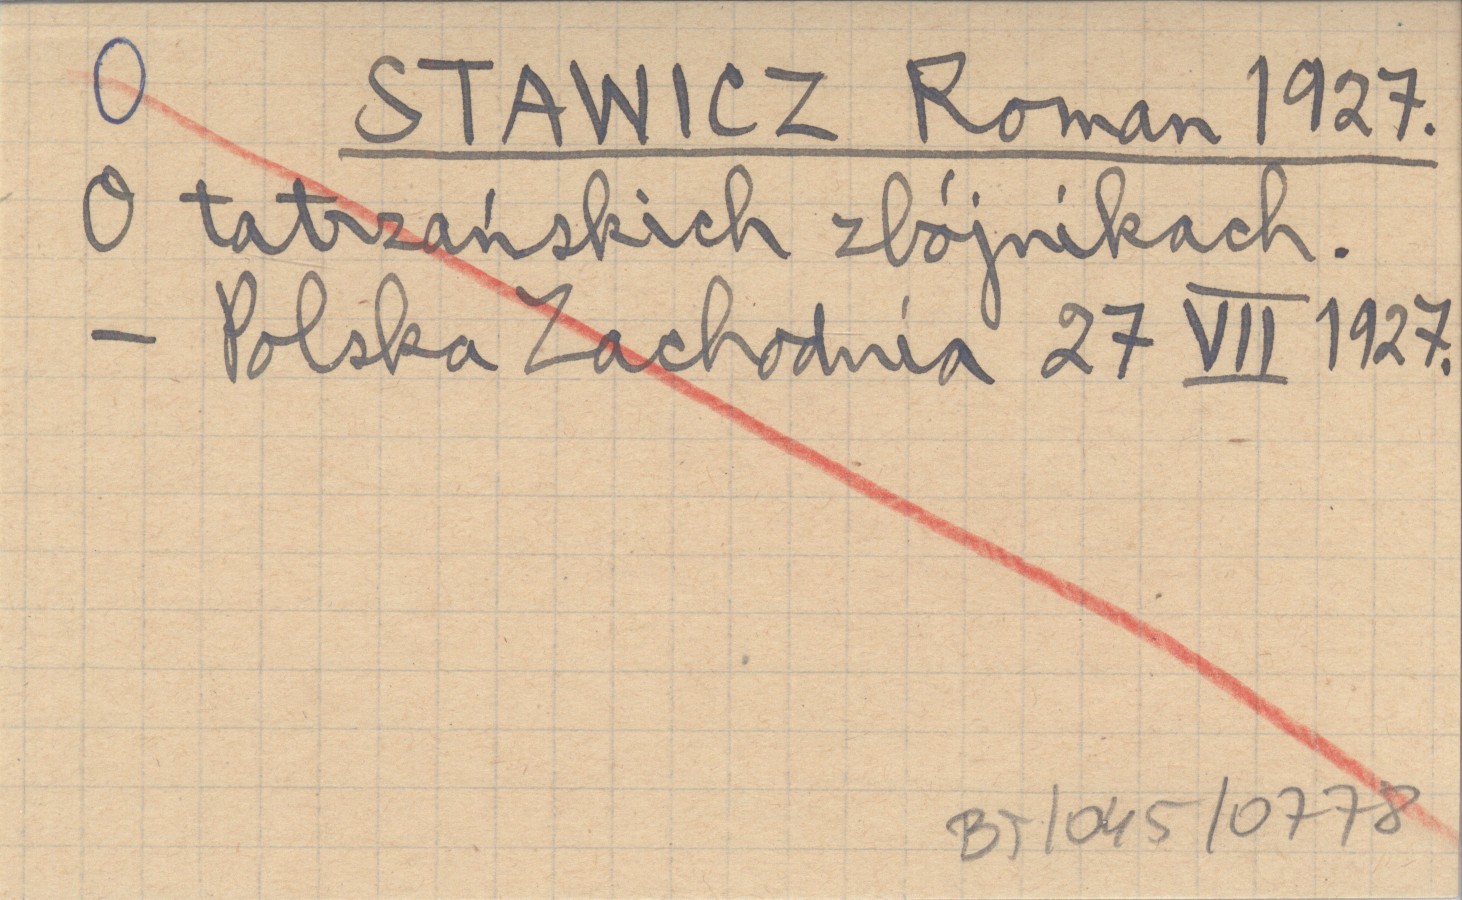 O STAWICZ Roman 1927.
O tatrzańskich zbójnikach.
– Polska Zachodnia 27 VII 1927.
BT/045/0778